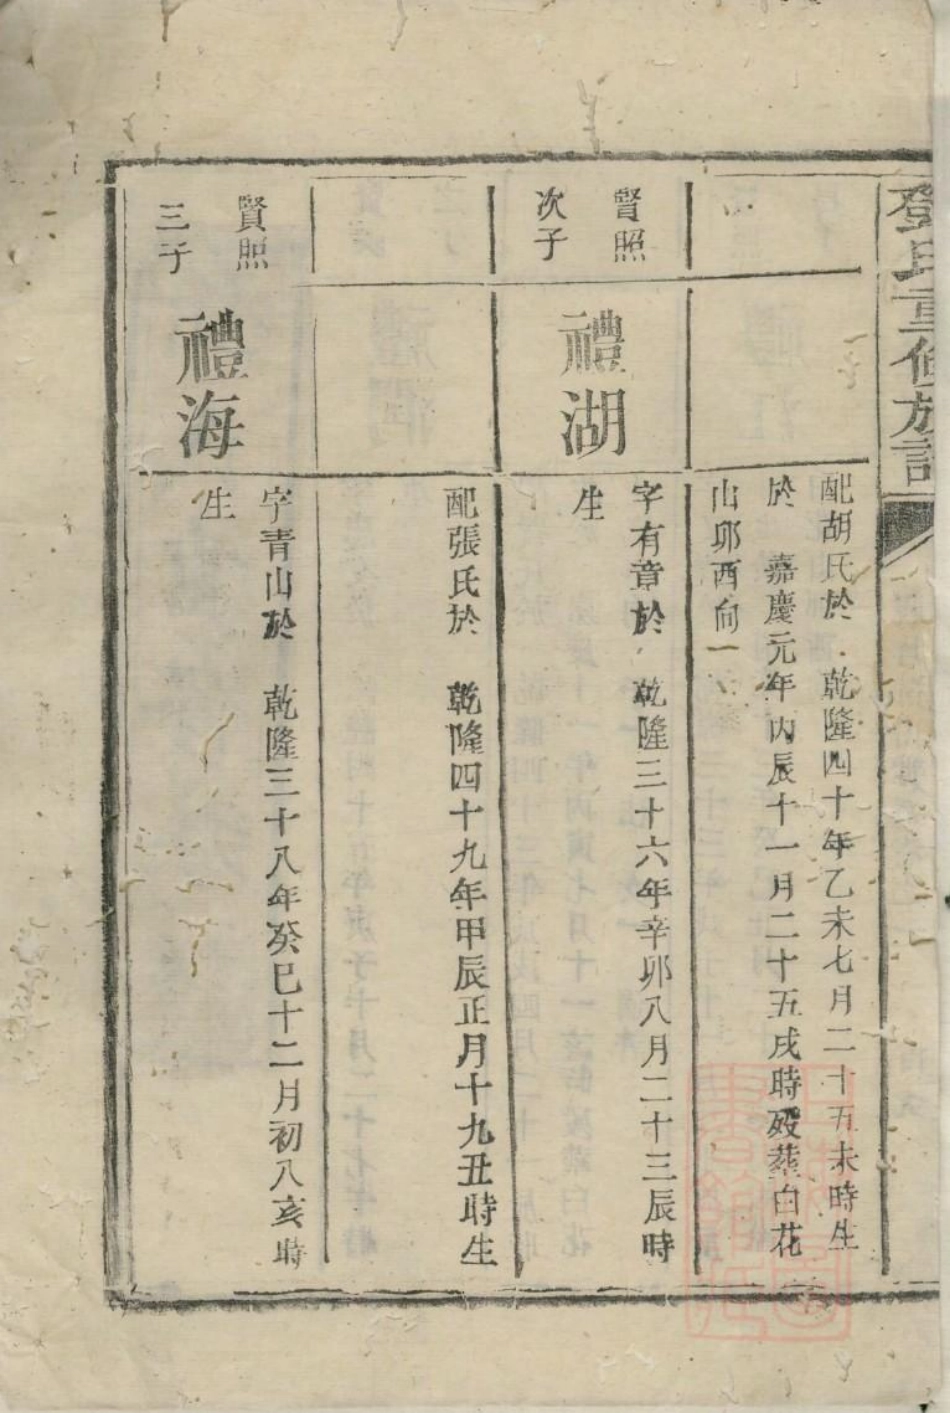 鄧氏重修族譜
配胡氏於 乾隆四十年乙未七月二十五未時生
於 嘉慶元年丙辰十一月二十五戌時殁葬白花
山卯西向
賢照
次子
禮湖
字有章於 乾隆三十六年辛卯八月二十三辰時
生
配張氏於 乾隆四十九年甲辰正月十九丑時生
賢照
三子
禮海
字青山於 乾隆三十八年癸巳十二月初八亥時
生